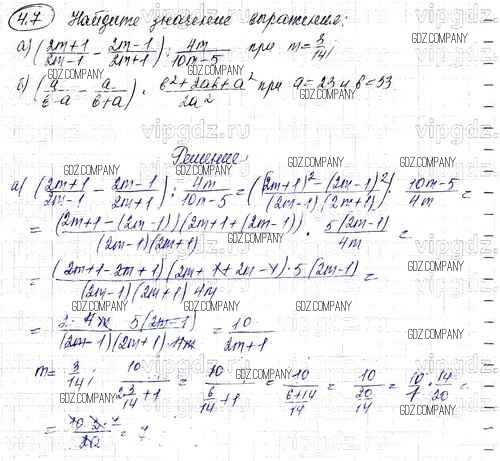 4.7 Найдите значение выражения:
а) ((2m+1)/(2m-1) - (2m-1)/(2m+1)) : 4m/(10m-5) при m = 3/14;
б) (a/(b-a) - a/(b+a)) · (b²+2ab+a²)/(2a²) при a=23 и b=33
Решение
а) ((2m+1)/(2m-1) - (2m-1)/(2m+1)) : 4m/(10m-5) = ((2m+1)² - (2m-1)²)/((2m-1)(2m+1)) · (10m-5)/4m =
= ((2m+1-(2m-1))(2m+1+(2m-1)))/((2m-1)(2m+1)) · 5(2m-1)/4m =
= ((2m+1-2m+1)(2m+1+2m-1)·5(2m-1))/((2m-1)(2m+1)4m) =
= (2·4m·5(2m-1))/((2m-1)(2m+1)·4m) = 10/(2m+1)
m = 3/14; 10/(2·3/14+1) = 10/(6/14+1) = 10/((6+14)/14) = 10/(20/14) = 10/1 · 14/20 =
= (10·2·7)/20 = 7
GDZ.COMPANY
vipgdz.ru